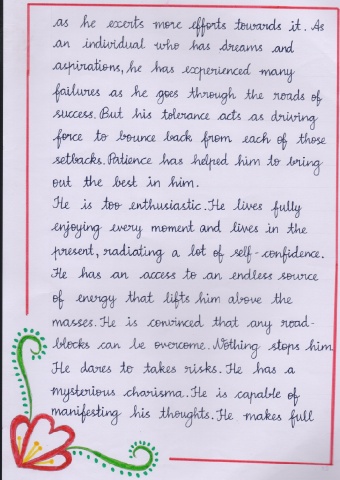 as he exerts more efforts towards it. As
an individual who has dreams and
aspirations, he has experienced many
failures as he goes through the roads of
success. But his tolerance acts as driving
force to bounce back from each of those
setbacks. Patience has helped him to bring
out the best in him.
He is too enthusiastic. He lives fully
enjoying every moment and lives in the
present, radiating a lot of self-confidence.
He has an access to an endless source
of energy that lifts him above the
masses. He is convinced that any road-
blocks can be overcome. Nothing stops him
He dares to takes risks. He has a
mysterious charisma. He is capable of
manifesting his thoughts. He makes full